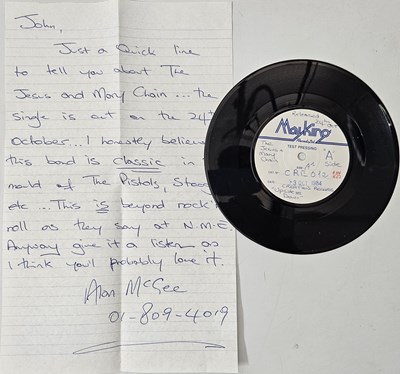 John,
Just a Quick line
to tell you about The
Jesus and Mary Chain ... the
single is out on the 24th
October... I honestly believe
this band is classic in
mould of The Pistols, Stooges
etc.. This is beyond rock'n
roll as they say at N.M.E.
Anyway give it a listen as
I think you'll probably love it.
Alan McGee
01-809-4019
Released
MayKing
TEST PRESSING
The
Jesus +
Mary
Chain
"A"
Side
CRE 012
1984
Creation Records
"Upside
Down"